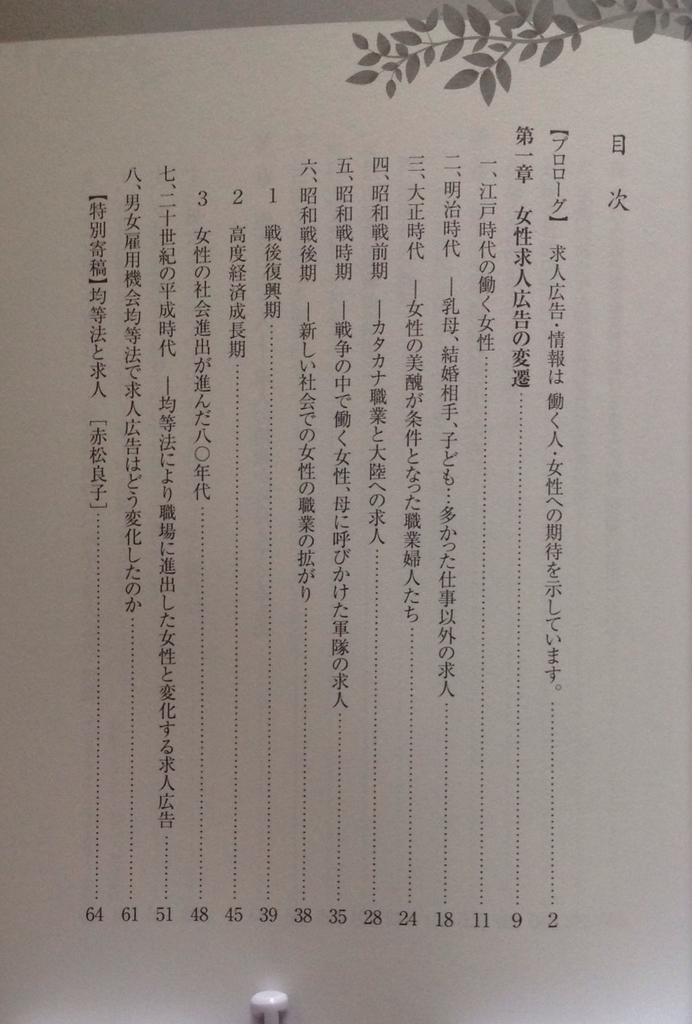 目次
【プロローグ】 求人広告・情報は 働く人・女性への期待を示しています。…… 2
第一章 女性求人広告の変遷…… 9
一、江戸時代の働く女性…… 11
二、明治時代 ―乳母、結婚相手、子ども…多かった仕事以外の求人…… 18
三、大正時代 ―女性の美醜が条件となった職業婦人たち…… 24
四、昭和戦前期 ―カタカナ職業と大陸への求人…… 28
五、昭和戦時期 ―戦争の中で働く女性、母に呼びかけた軍隊の求人…… 35
六、昭和戦後期 ―新しい社会での女性の職業の拡がり…… 38
1 戦後復興期…… 39
2 高度経済成長期…… 45
3 女性の社会進出が進んだ八〇年代…… 48
七、二十世紀の平成時代 ―均等法により職場に進出した女性と変化する求人広告…… 51
八、男女雇用機会均等法で求人広告はどう変化したのか…… 61
【特別寄稿】均等法と求人 [赤松良子]…… 64